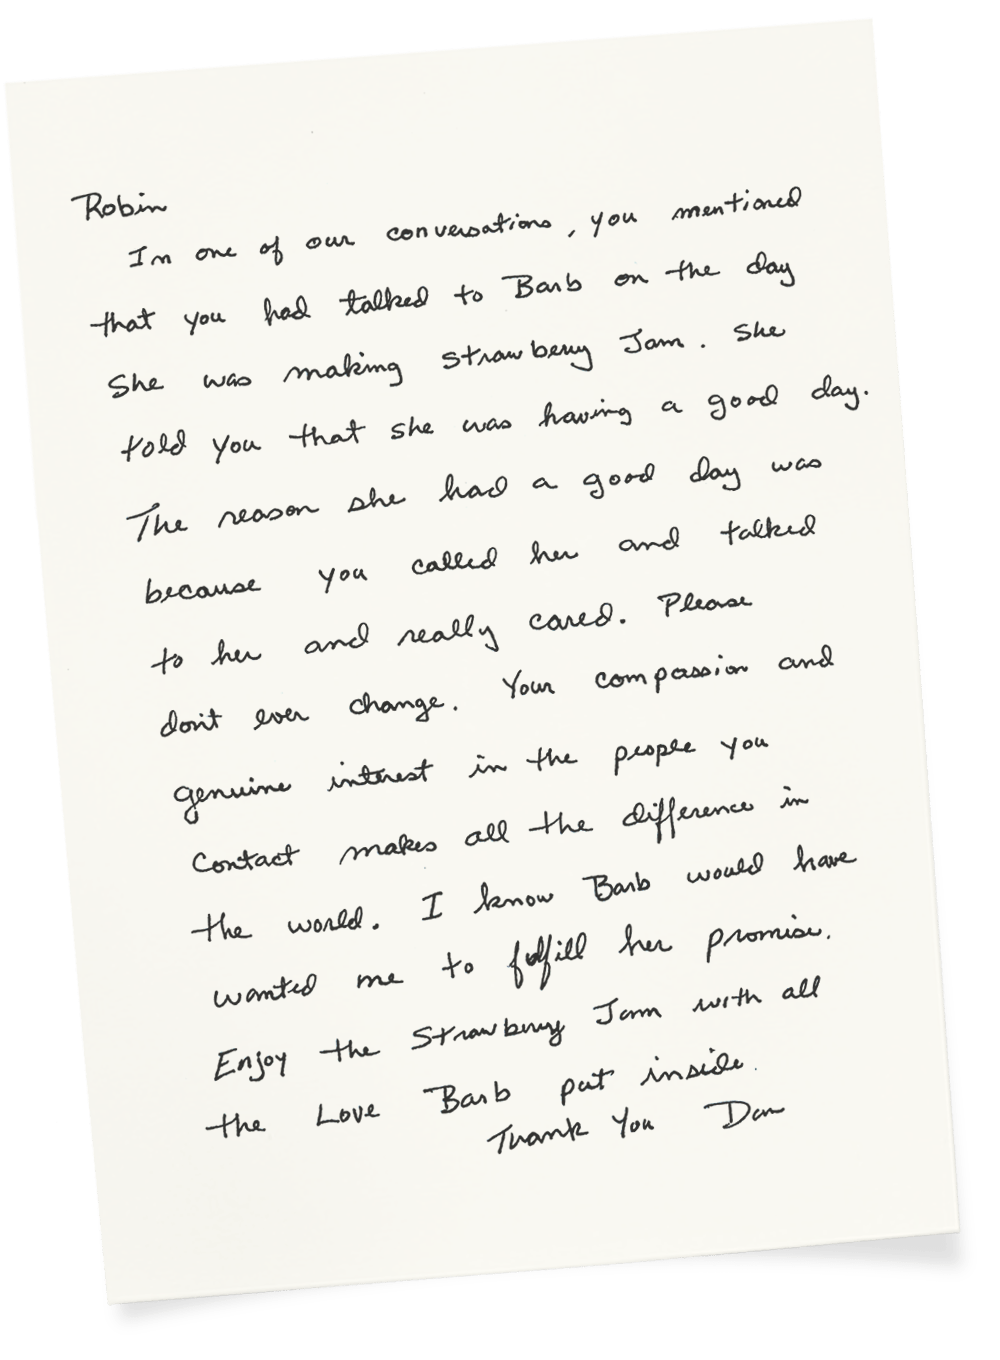 Robin
In one of our conversations, you mentioned
that you had talked to Barb on the day
She was making strawberry Jam. She
told you that she was having a good day.
The reason she had a good day was
because you called her and talked
to her and really cared. Please
don't ever change. Your compassion and
genuine interest in the people you
Contact makes all the difference in
the world. I know Barb would have
wanted me to fulfill her promise.
Enjoy the Strawberry Jam with all
the Love Barb put inside.
Thank You Dan